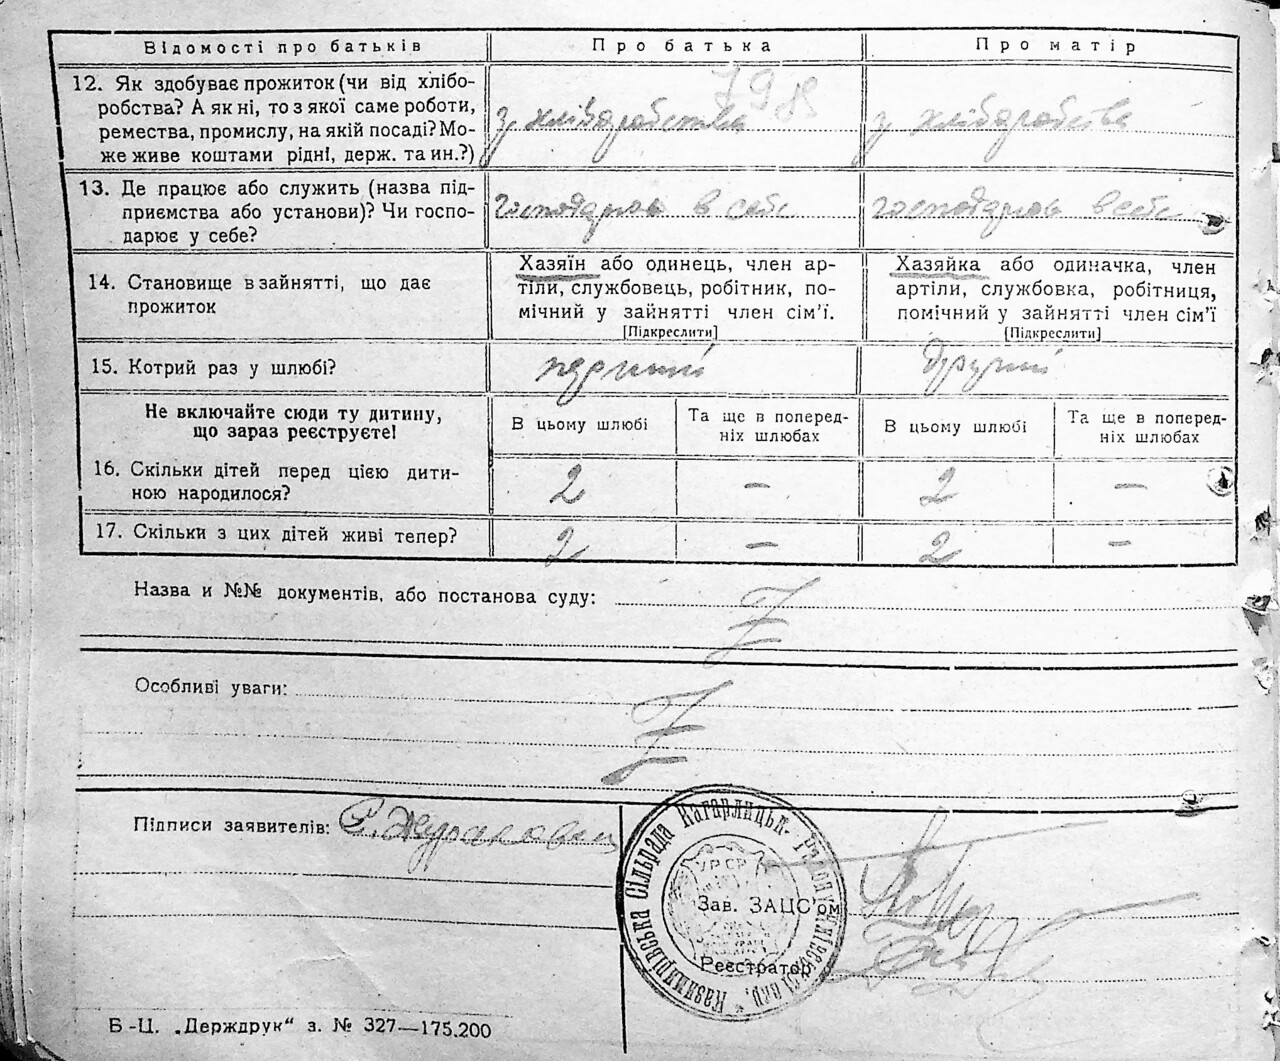 Відомості про батьків
Про батька
Про матір
12. Як здобуває прожиток (чи від хлібо-
робства? А як ні, то з якої саме роботи,
ремества, промислу, на якій посаді? Мо-
же живе коштами рідні, держ. та ин.?)
з хліборобства
з хліборобства
13. Де працює або служить (назва під-
приємства або установи)? Чи госпо-
дарює у себе?
господарює в себе
господарює в себе
14. Становище в зайнятті, що дає
прожиток
Хазяїн або одинець, член ар-
тіли, службовець, робітник, по-
мічний у зайнятті член сім'ї.
[Підкреслити]
Хазяйка або одиначка, член
артіли, службовка, робітниця,
помічний у зайнятті член сім'ї
[Підкреслити]
15. Котрий раз у шлюбі?
перший
другий
Не включайте сюди ту дитину,
що зараз реєструєте!
В цьому шлюбі
Та ще в поперед-
ніх шлюбах
В цьому шлюбі
Та ще в поперед-
ніх шлюбах
16. Скільки дітей перед цією дити-
ною народилося?
2
—
2
—
17. Скільки з цих дітей живі тепер?
2
—
2
—
Назва и №№ документів, або постанова суду:
Особливі уваги:
Підписи заявителів:
УРСР
Зав. ЗАЦС'ом
Реєстратор
Сільрада Кагарлицьк.
Б-Ц. „Держдрук“ з. № 327—175.200